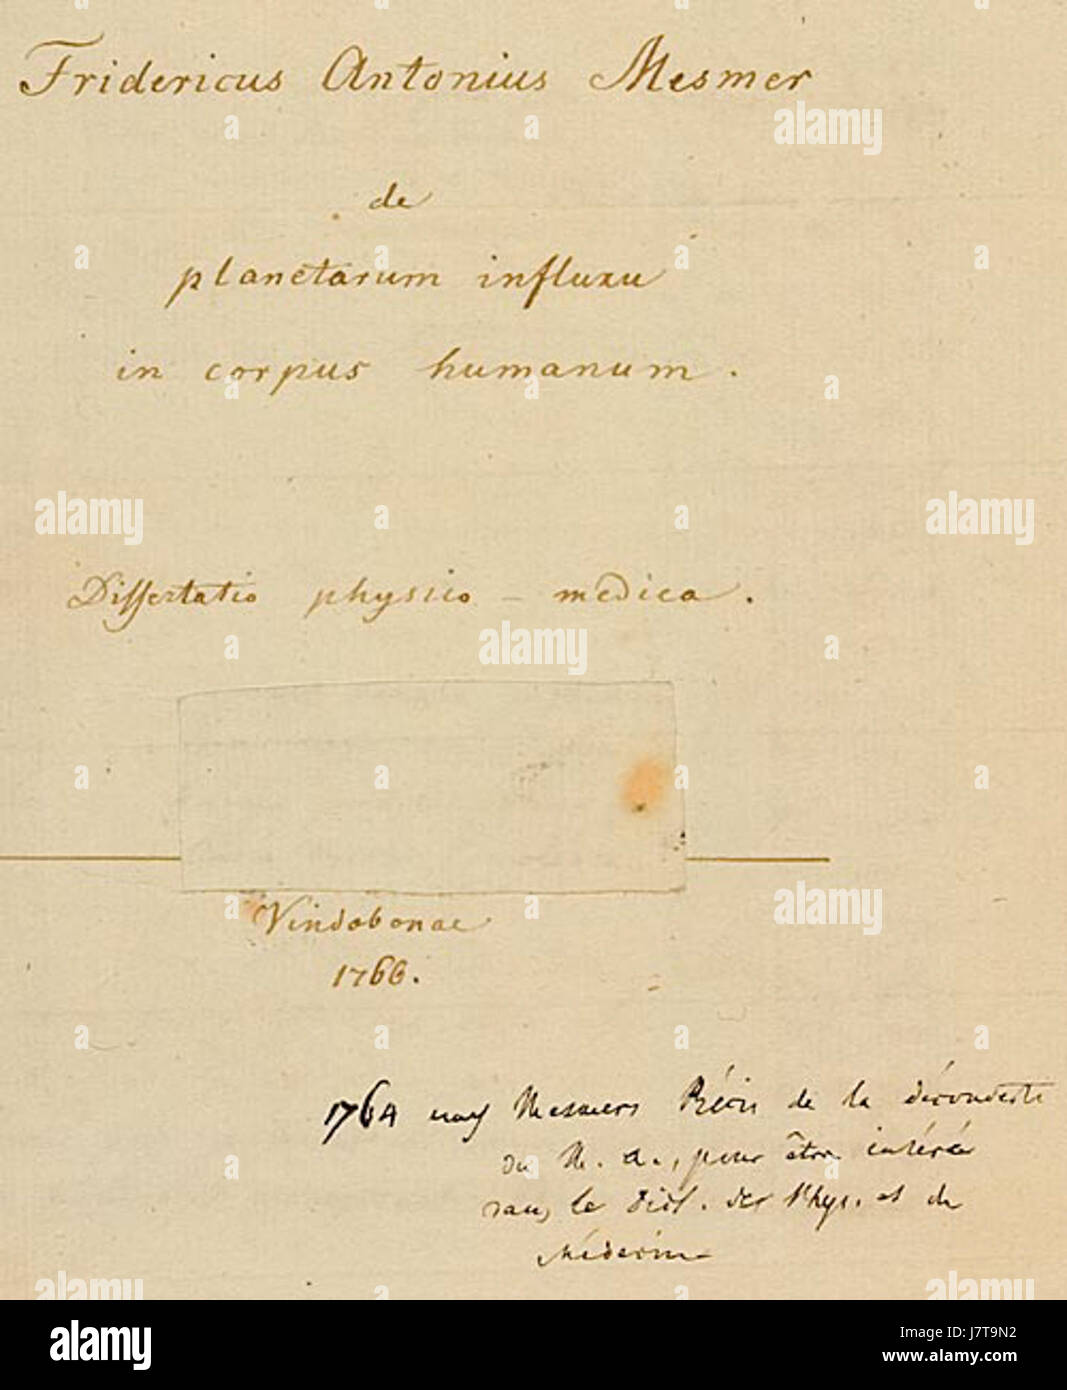 Fridericus Antonius Mesmer
de
planetarum influxu
in corpus humanum.
Dissertatio physico - medica.
Vindobonae
1766.
1764 nach Mesmers Récis de la découverte
du M. a., pour être insérée
dans le Dict. des Phys. et de
Médecine
alamy
Image ID: J7T9N2
www.alamy.com